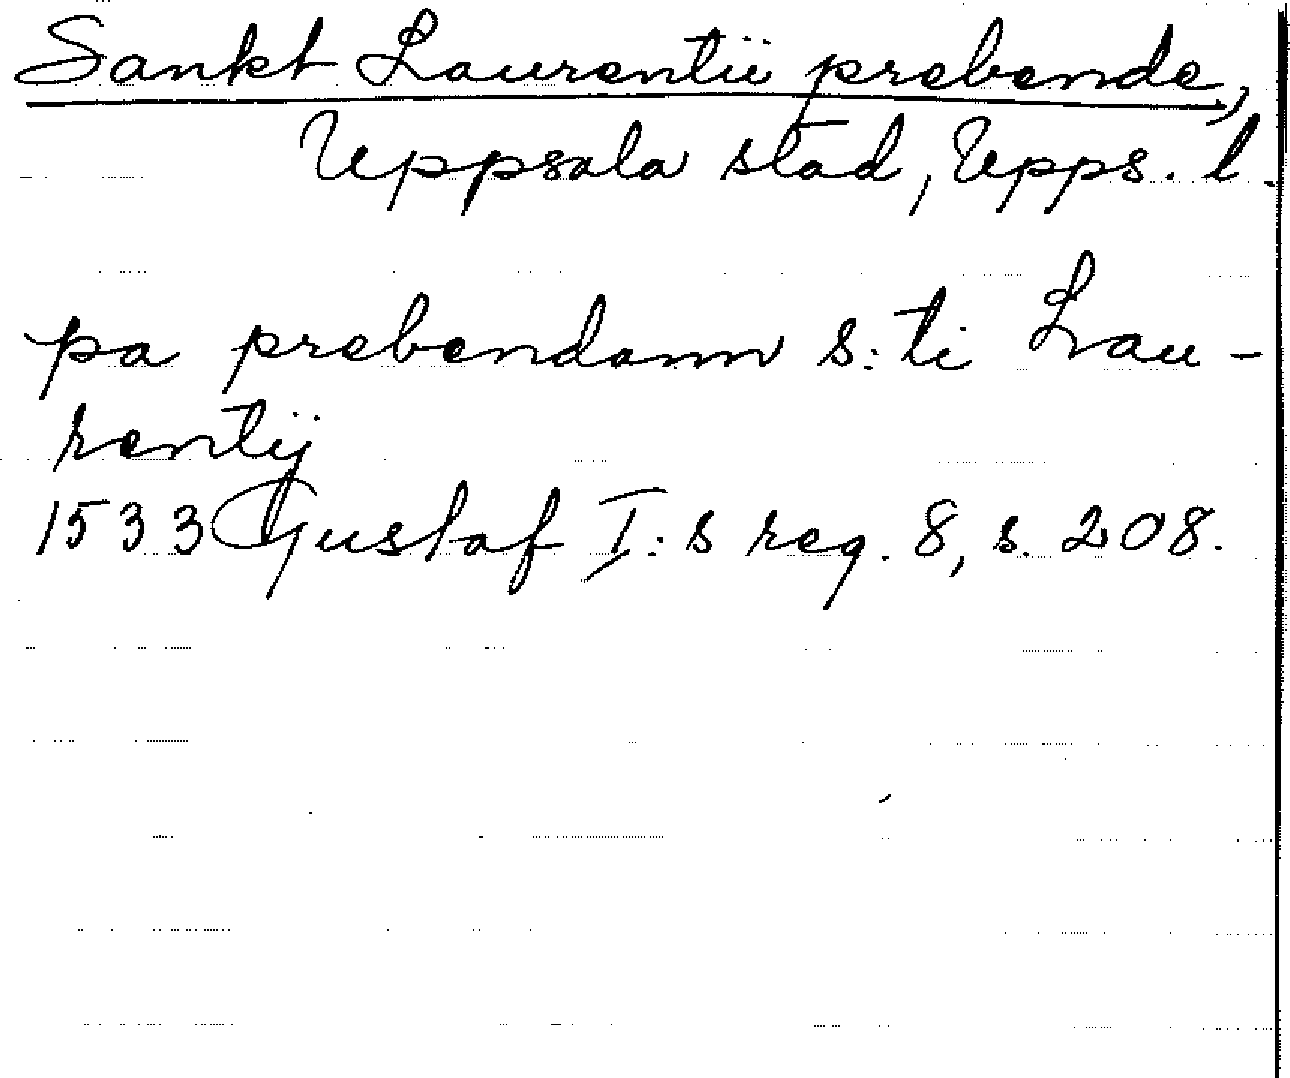 Sankt Laurentii prebende,
Uppsala stad, Upps. l.
pa prebendam s:ti Lau-
rentij
1533 Gustaf I:s reg. 8, s. 208.